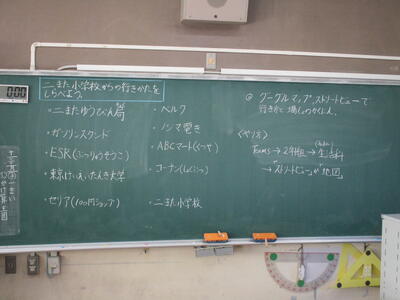 二また小学校からの行きかたを
しらべよう。
・二またゆうびん局
・ガソリンスタンド
・ESR(ぶつりゅうそうこ)
・東京けいえいたんき大学
・セリア(100円ショップ)
・ベルク
・ノジマ電き
・ABCマート(くつや)
・コーナン
・二また小学校
◎ グーグルマップ、ストリートビューで
行きかた
<やり方>
Teams→2年1組→生活科
→「ストリートビュー」か「地図」
0:00